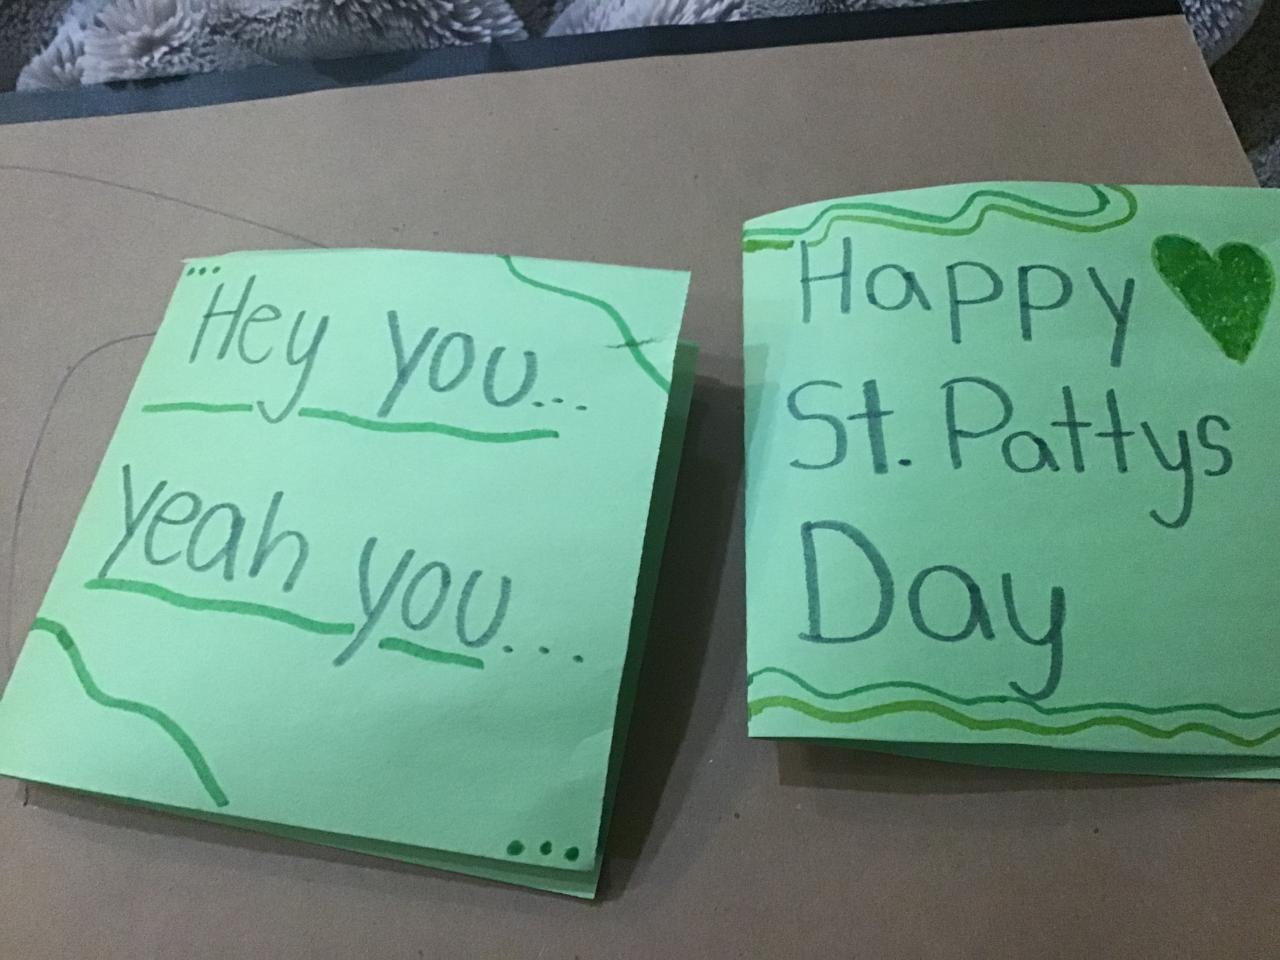 Hey you...
yeah you...
Happy
St. Pattys
Day